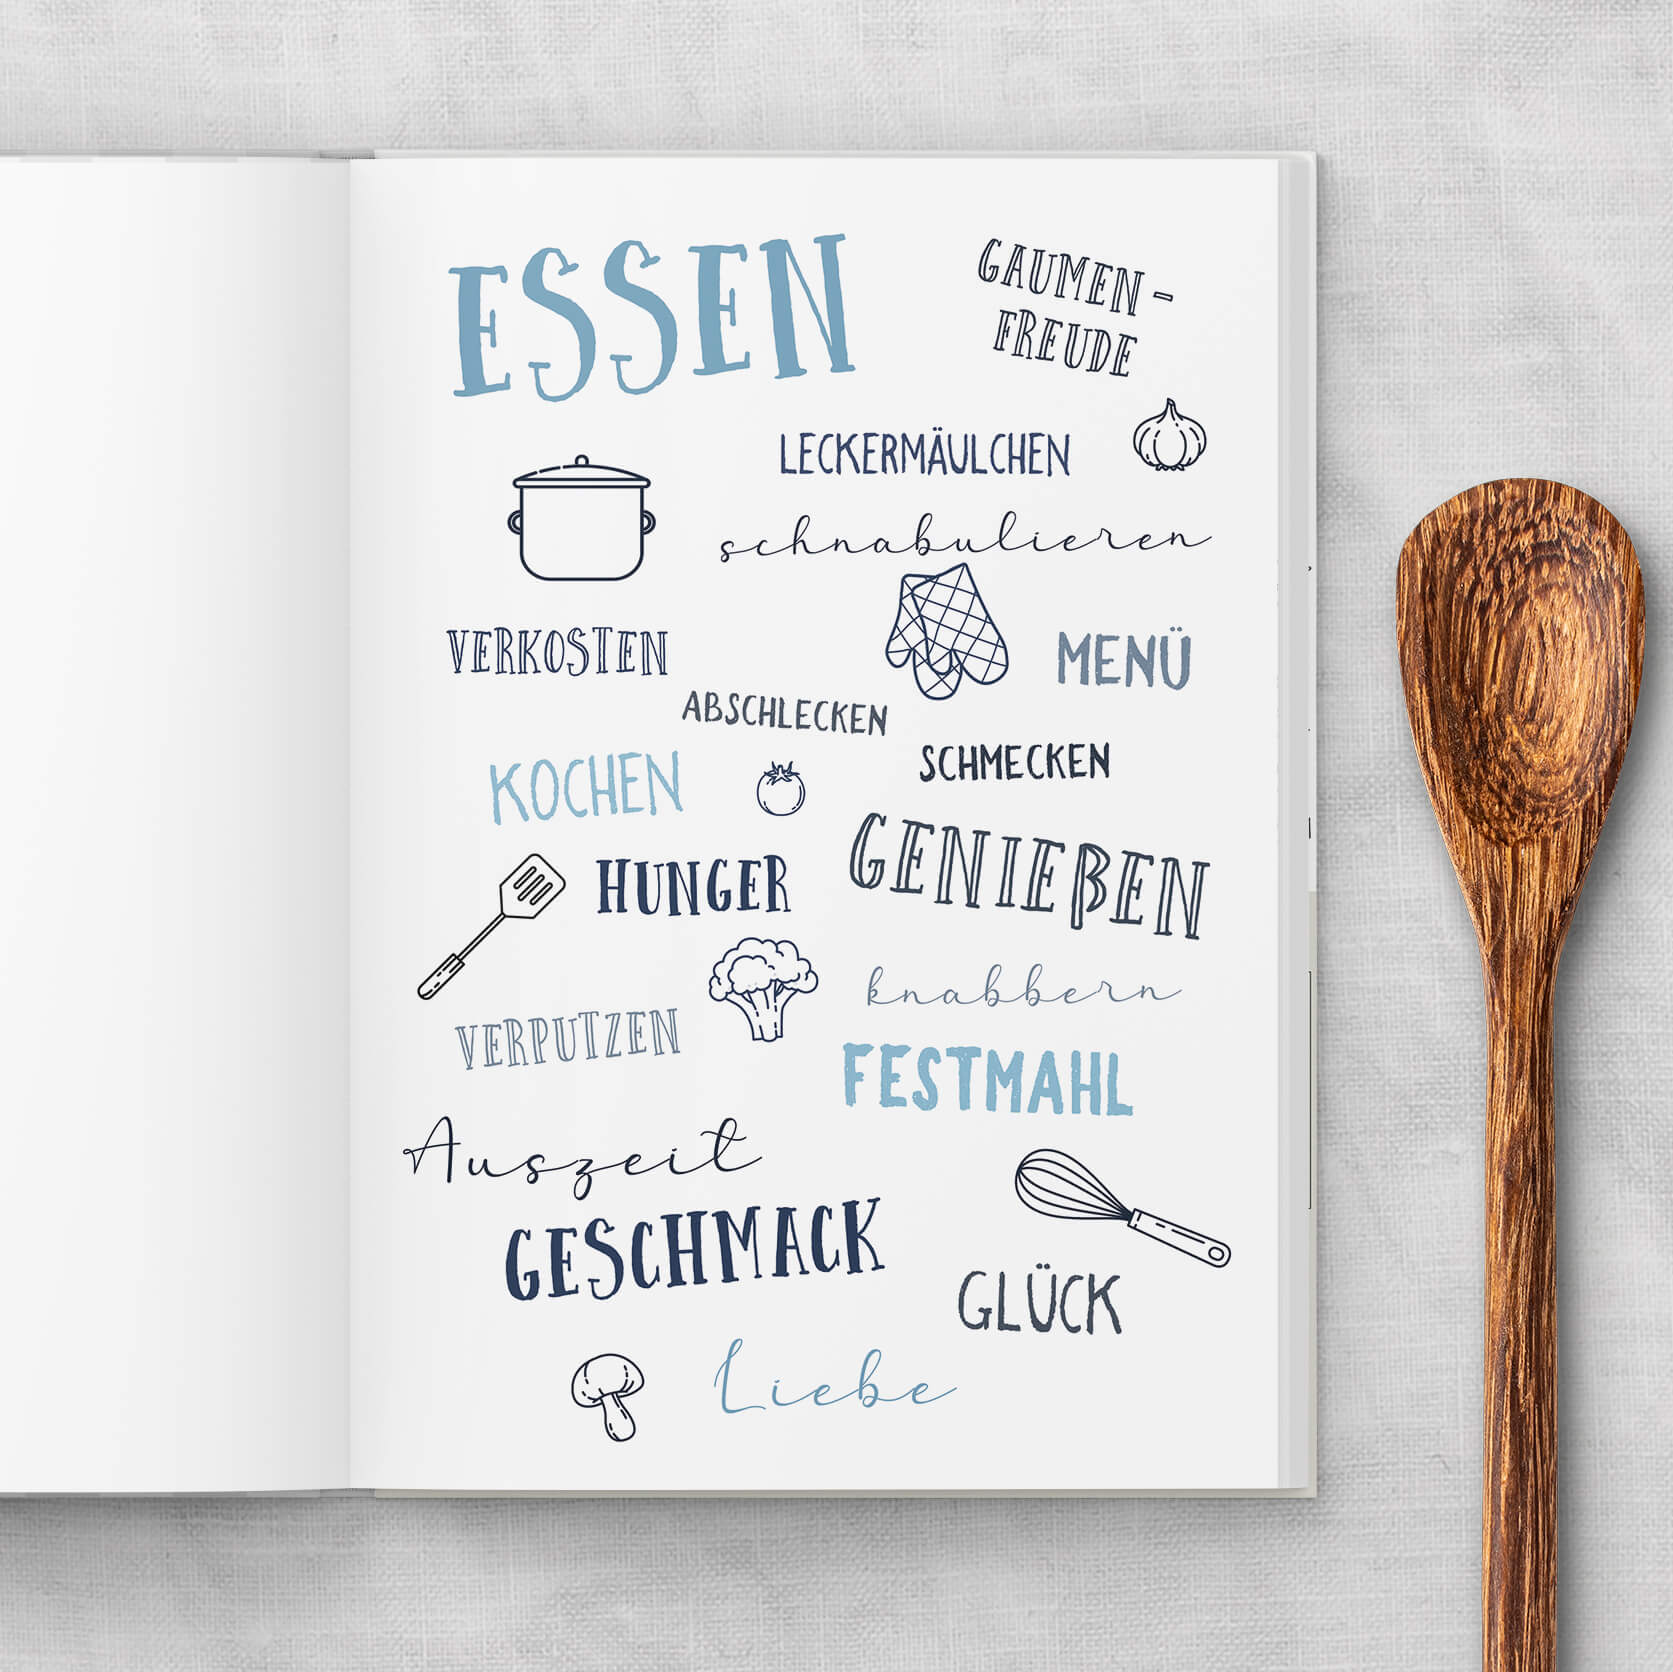 ESSEN
GAUMEN-
FREUDE
LECKERMÄULCHEN
schnabulieren
VERKOSTEN
MENÜ
ABSCHLECKEN
SCHMECKEN
KOCHEN
GENIEßEN
HUNGER
knabbern
VERPUTZEN
FESTMAHL
Auszeit
GESCHMACK
GLÜCK
Liebe